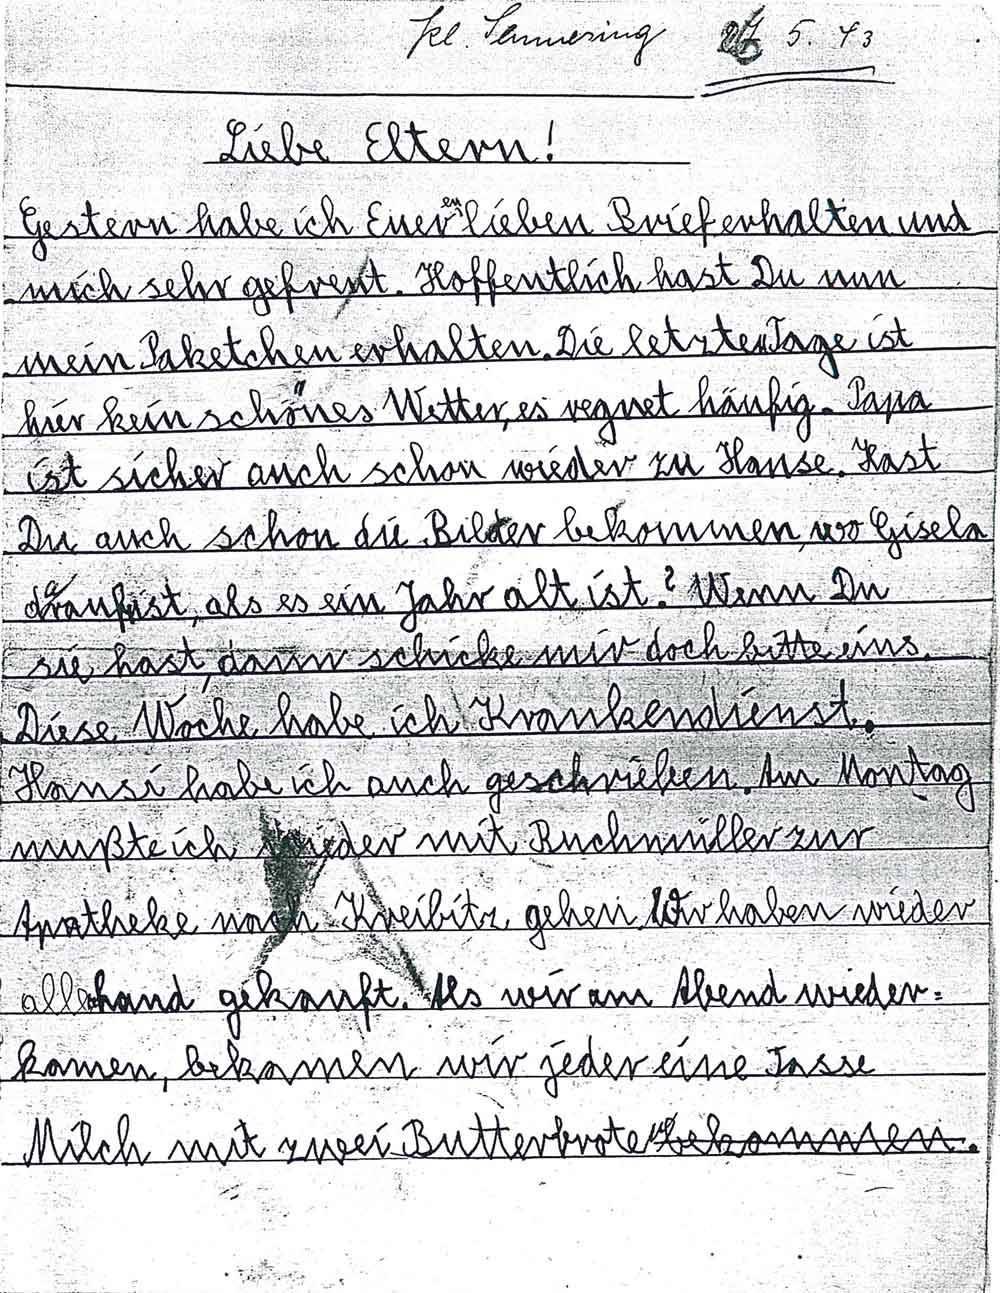 Kl. Semmering 27. 5. 43
Liebe Eltern!
Gestern habe ich Eueren lieben Brief erhalten und
mich sehr gefreut. Hoffentlich hast Du nun
mein Paketchen erhalten. Die letzten Tage ist
hier kein schönes Wetter, es regnet häufig. Papa
ist sicher auch schon wieder zu Hause. Hast
Du auch schon die Bilder bekommen, wo Gisela
darauf ist, als es ein Jahr alt ist? Wenn Du
sie hast, dann schicke mir doch bitte eins.
Diese Woche habe ich Krankendienst.
Hansi habe ich auch geschrieben. Am Montag
mußte ich wieder mit Buchmüller zur
Apotheke nach Kreibitz gehen. Wir haben wieder
allehand gekauft. Als wir am Abend wieder=
kamen, bekamen wir jeder eine Tasse
Milch mit zwei Butterbrote bekommen.